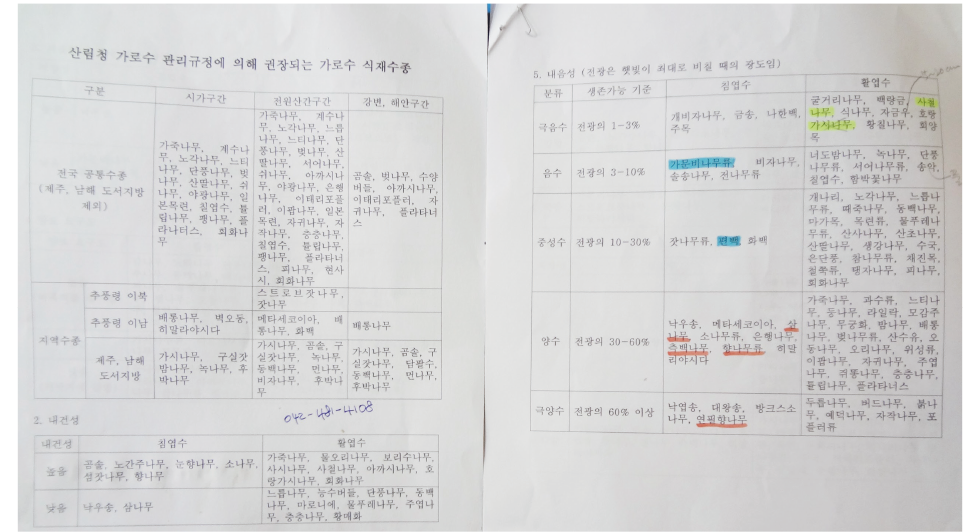 산림청 가로수 관리규정에 의해 권장되는 가로수 식재수종
구분
시가구간
전원산간구간
강변, 해안구간
전국 공통수종
(제주, 남해 도서지방
제외)
가죽나무, 계수나
무, 노각나무, 느티
나무, 단풍나무, 벚
나무, 산딸나무, 쉬
나무, 야광나무, 일
본목련, 칠엽수, 튤
립나무, 팽나무, 플
라나터스, 회화나
무
가죽나무, 계수나
무, 노각나무, 느릅
나무, 느티나무, 단
풍나무, 벚나무, 산
딸나무, 서어나무,
쉬나무, 아까시나
무, 야광나무, 은행
나무, 이태리포플
러, 이팝나무, 일본
목련, 자귀나무, 자
작나무, 층층나무,
칠엽수, 튤립나무,
팽나무, 플라타너
스, 피나무, 현사
시, 회화나무
곰솔, 벚나무, 수양
버들, 아까시나무,
이태리포플러, 자
귀나무, 플라타너
스
지역수종
추풍령 이북
스트로브잣나무,
잣나무
추풍령 이남
배롱나무, 벽오동,
히말라야시다
메타세코이아, 배
롱나무, 화백
배롱나무
제주, 남해
도서지방
가시나무, 구실잣
밤나무, 녹나무, 후
박나무
가시나무, 곰솔, 구
실잣나무, 녹나무,
동백나무, 먼나무,
비자나무, 후박나
무
가시나무, 곰솔, 구
실잣나무, 담팔수,
동백나무, 먼나무,
후박나무
042-481-4108
2. 내건성
내건성
침엽수
활엽수
높음
곰솔, 노간주나무, 눈향나무, 소나무,
섬잣나무, 향나무
가죽나무, 물오리나무, 보리수나무,
사시나무, 사철나무, 아까시나무, 호
랑가시나무, 회화나무
낮음
낙우송, 삼나무
느릅나무, 능수버들, 단풍나무, 동백
나무, 마로니에, 물푸레나무, 주엽나
무, 층층나무, 황매화
5. 내음성 (전광은 햇빛이 최대로 비칠 때의 광도임)
분류
생존가능 기준
침엽수
활엽수
극음수
전광의 1-3%
개비자나무, 금송, 나한백,
주목
굴거리나무, 백량금, 사철
나무, 식나무, 자금우, 호랑
가시나무, 황칠나무, 회양
목
음수
전광의 3-10%
가문비나무류, 비자나무,
솔송나무, 전나무류
너도밤나무, 녹나무, 단풍
나무류, 서어나무류, 송악,
칠엽수, 함박꽃나무
중성수
전광의 10-30%
잣나무류, 편백, 화백
개나리, 노각나무, 느릅나
무류, 때죽나무, 동백나무,
마가목, 목련류, 물푸레나
무류, 산사나무, 산초나무,
산딸나무, 생강나무, 수국,
은단풍, 참나무류, 채진목,
철쭉류, 탱자나무, 피나무,
회화나무
양수
전광의 30-60%
낙우송, 메타세코이아, 삼
나무, 소나무류, 은행나무,
측백나무, 향나무류, 히말
라야시다
가죽나무, 과수류, 느티나
무, 등나무, 라일락, 모감주
나무, 무궁화, 밤나무, 배롱
나무, 벚나무류, 산수유, 오
동나무, 오리나무, 위성류,
이팝나무, 자귀나무, 주엽
나무, 쥐똥나무, 층층나무,
튤립나무, 플라타너스
극양수
전광의 60% 이상
낙엽송, 대왕송, 방크스소
나무, 연필향나무
두릅나무, 버드나무, 붉나
무, 예덕나무, 자작나무, 포
플러류